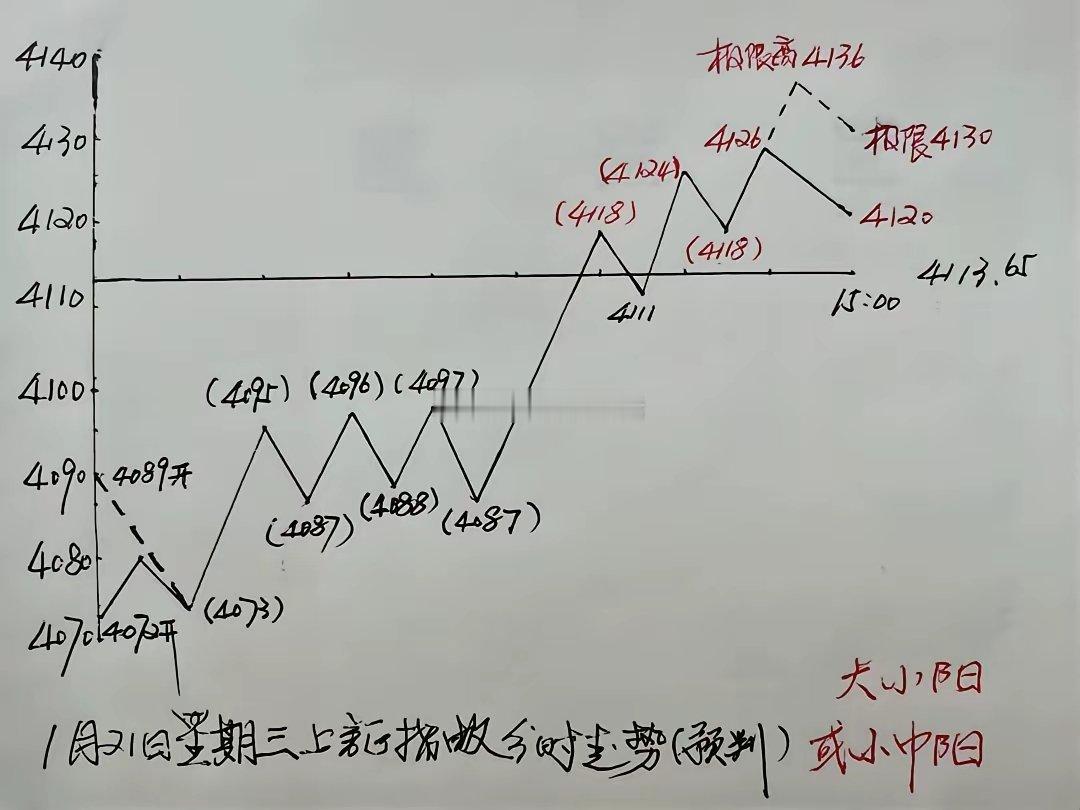 4140
极限高4136
4130
4126
极限4130
(4124)
(4118)
4120
(4118)
4120
4113.65
4110
4111
15:00
4100
(4095)
(4096)
(4097)
4090
4089开
(4087)
(4088)
(4087)
4080
4070
4072开
(4073)
大小阳
1月21日星期三上证指数分时走势(预判)
或小中阳